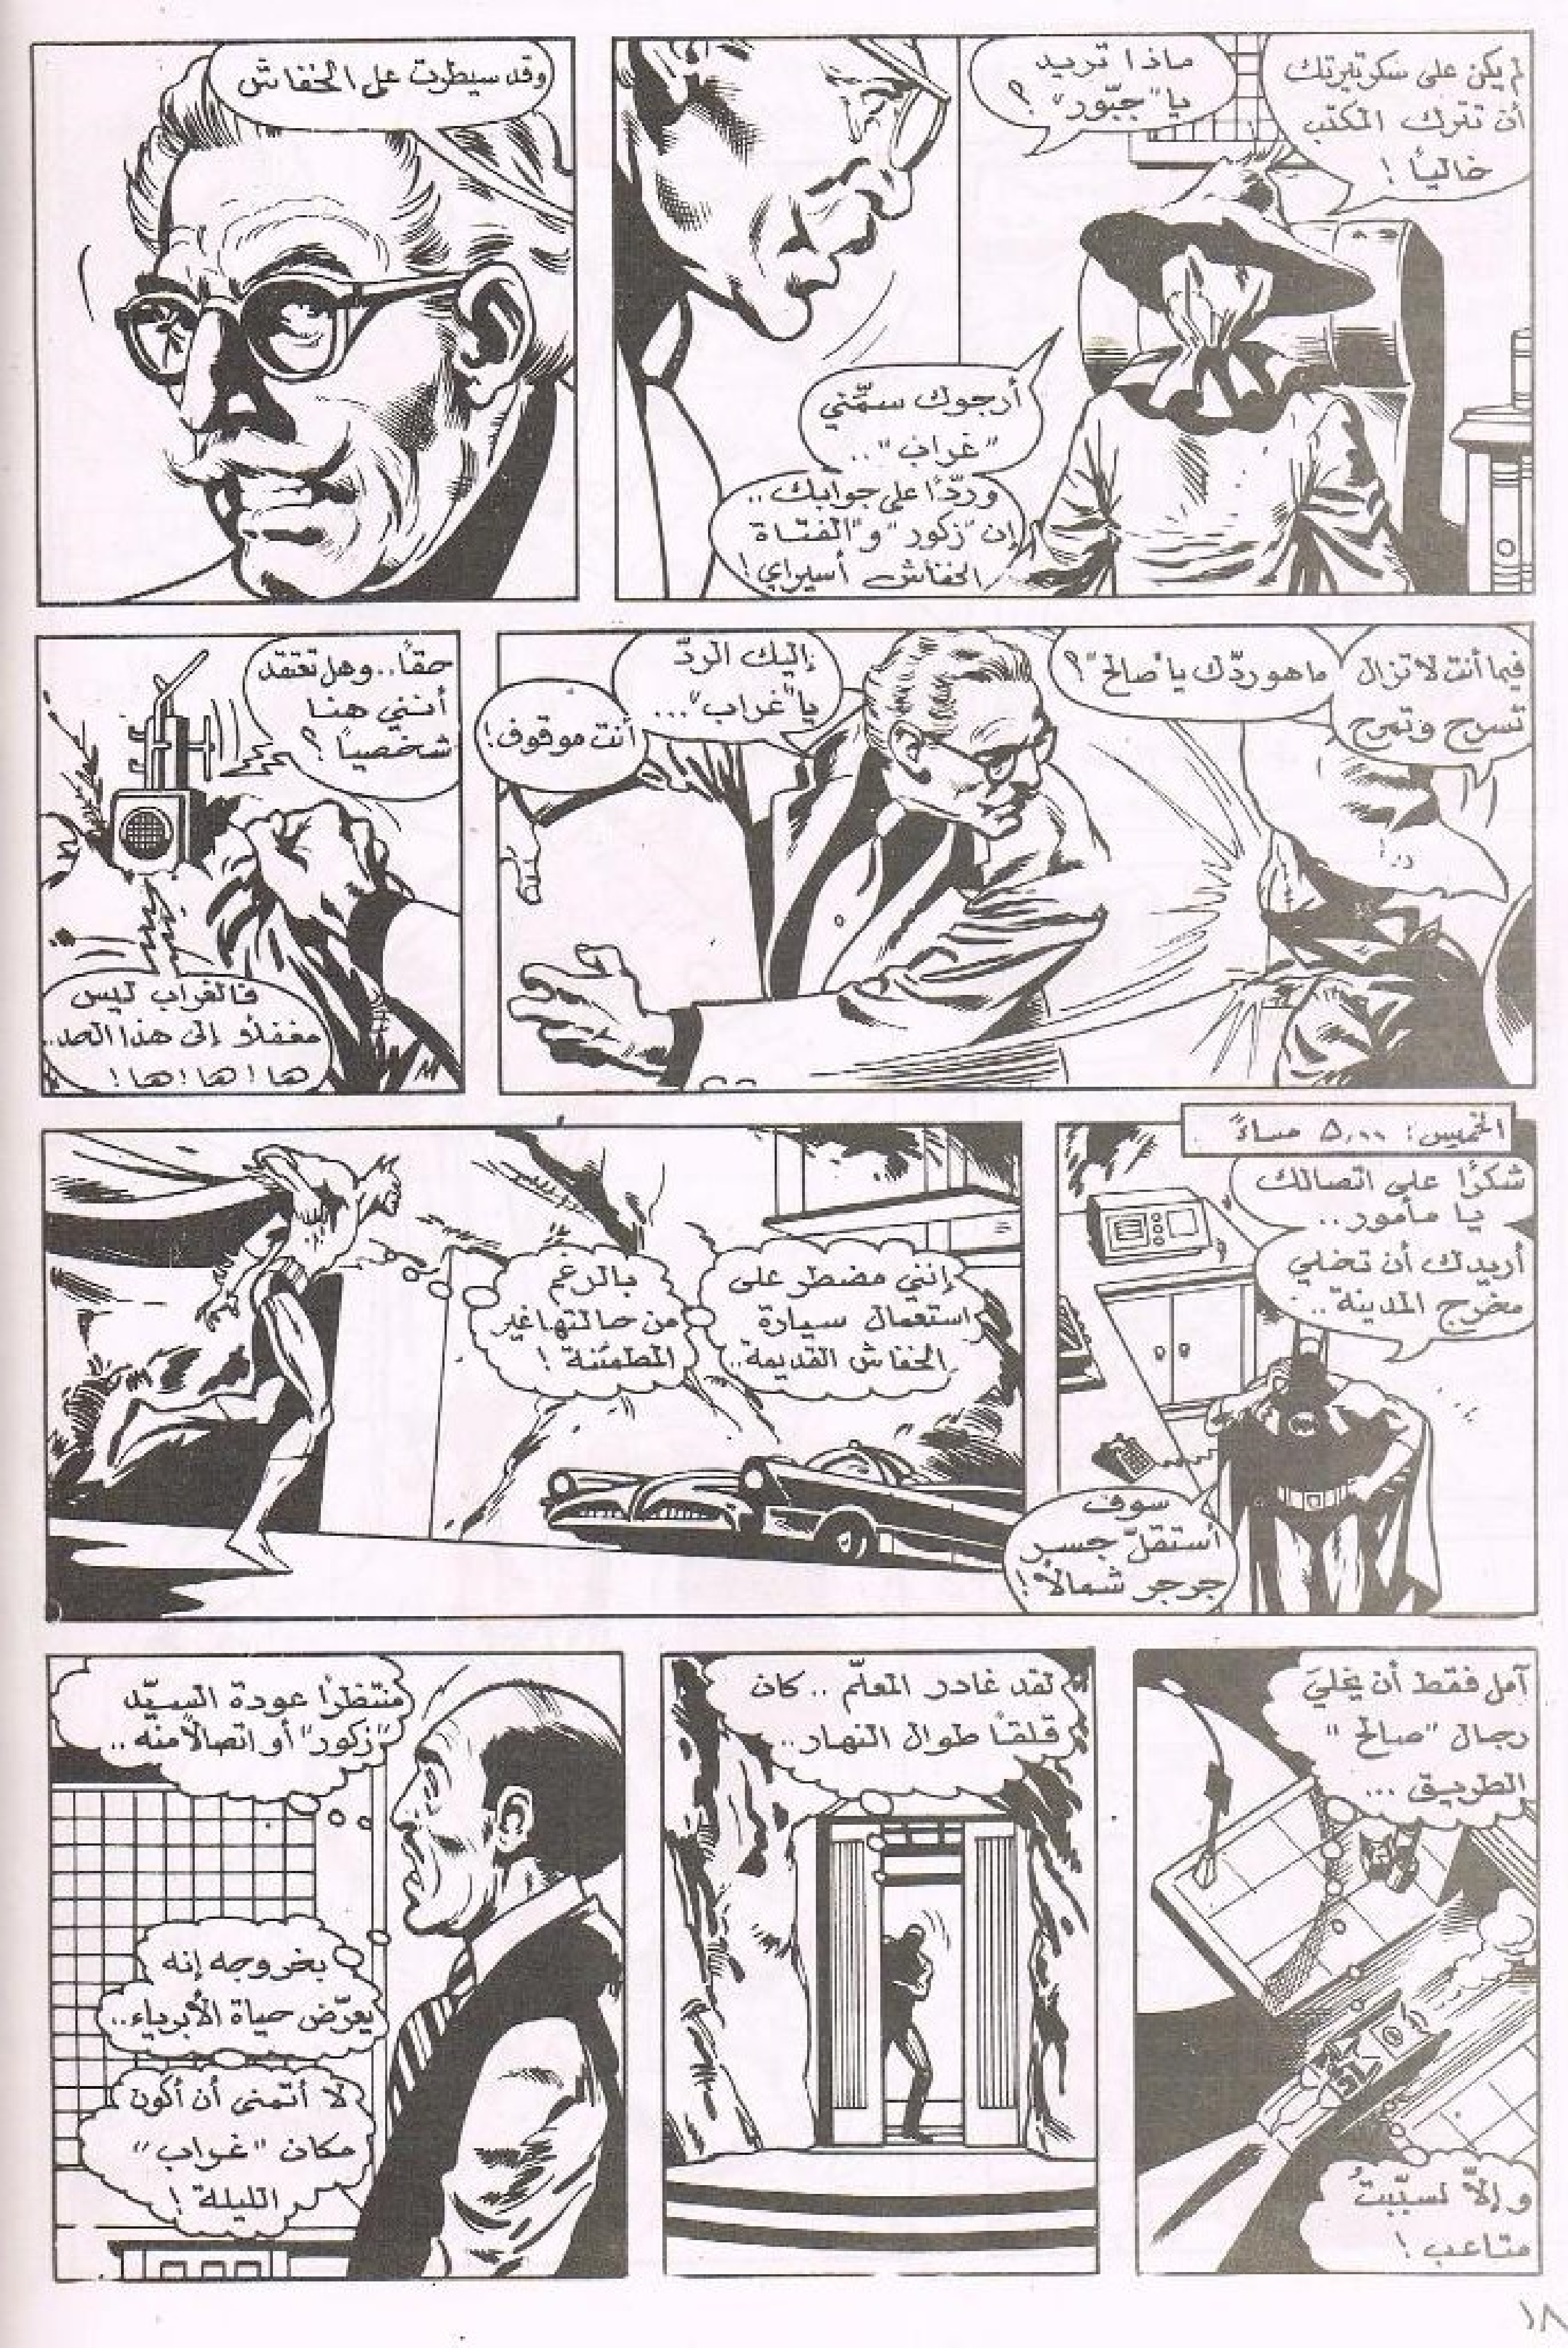 لم يكن على سكرتيرتك
أن تترك المكتب
خالياً!
ماذا تريد
يا "جبّور"؟
أرجوك سمّني
"غراب"..
وردّاً على جوابك..
إن "زكور" و"الفتاة
الخفاش" أسيراي!
وقد سيطرت على الخفاش
فيما أنت لا تزال
تسرح وتمرح
ما هو ردّك يا "صالح"؟
إليك الردّ
يا "غراب"...
أنت موقوف!
حقاً.. وهل تعتقد
أنني هنا
شخصياً؟
فالغراب ليس
مغفلاً إلى هذا الحد..
ها! ها! ها!
الخميس: ٥,٠٠ مساءً
شكرًا على اتصالك
يا مأمور..
أريدك أن تخلي
مخرج المدينة..
سوف
أستقلّ جسر
جرجر شمالاً!
إنني مضطر على
استعمال سيارة
الخفاش القديمة..
بالرغم
من حالتها غير
المطمئنة!
آمل فقط أن يخلي
رجال "صالح"
الطريق...
وإلاّ لسبّبتُ
متاعب!
لقد غادر المعلّم.. كان
قلقاً طوال النهار..
منتظرًا عودة السيّد
"زكور" أو اتصالاً منه..
بخروجه إنه
يعرّض حياة الأبرياء..
لا أتمنى أن أكون
مكان "غراب"
الليلة!
١٨